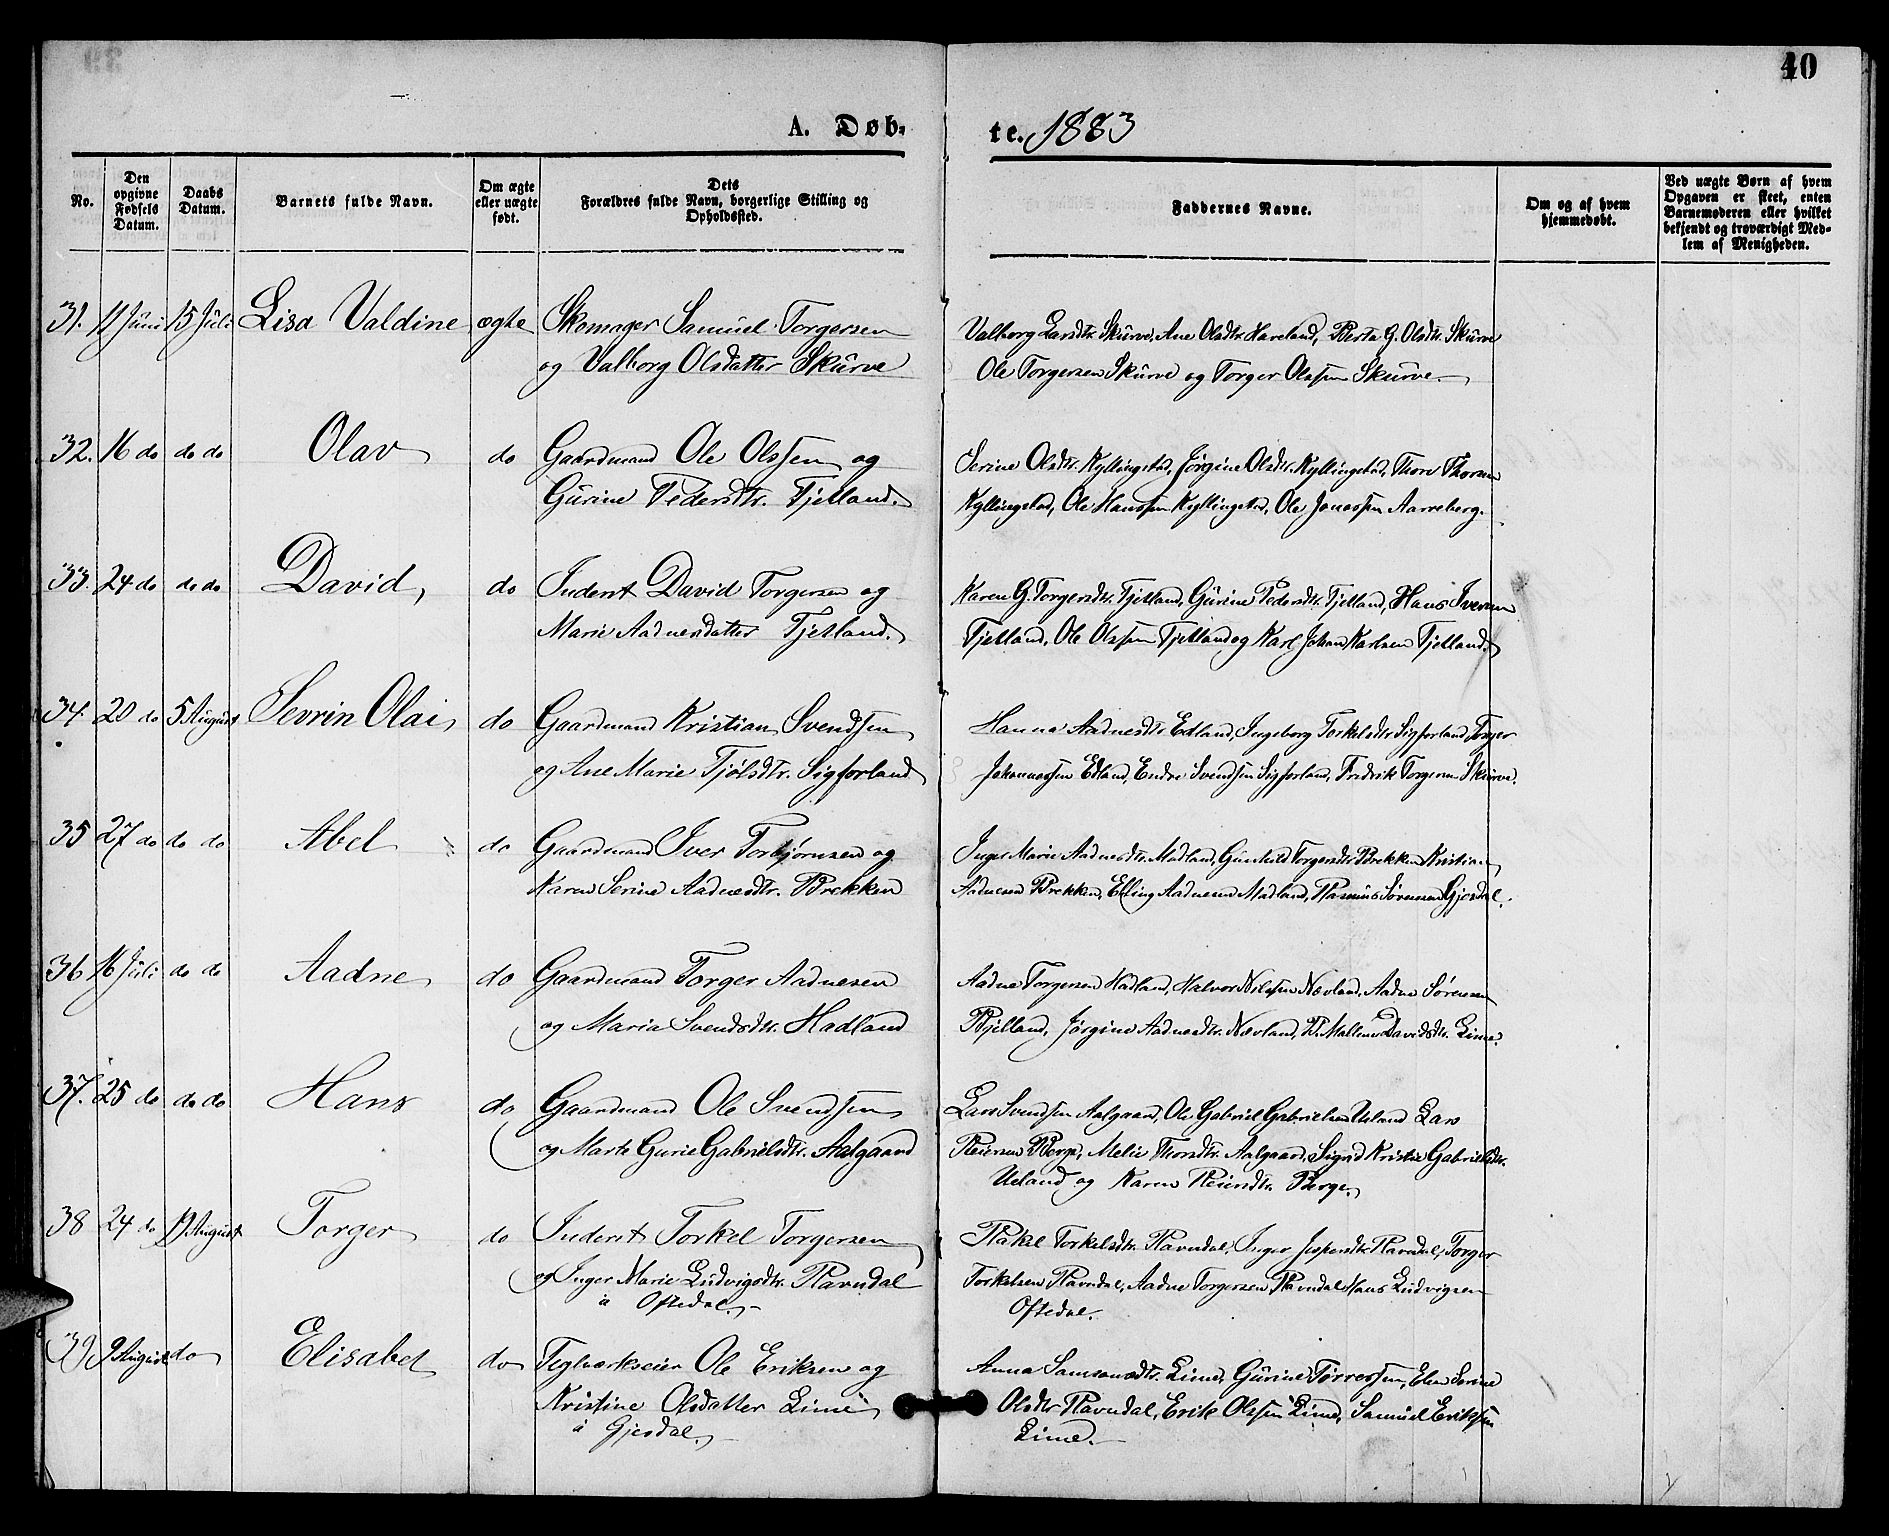 40
A. Døb-
te. 1883
No.
Den opgivne Fødsels Datum.
Daabs Datum.
Barnets fulde Navn.
Om ægte eller uægte født.
Dets Forældres fulde Navn, borgerlige Stilling og Opholdssted.
Faddernes Navne.
Om og af hvem hjemmedøbt.
Ved uægte Børn af hvem Opgaven er skeet, enten Barnemoderen eller hvilket bekjendt og troværdigt Medlem af Menigheden.
31. 11 Juni 15 Juli Lisa Valdine ægte Skomager Samuel Torgersen
og Valborg Olsdatter Skurve
Valborg Larsdtr. Skurve, Ane Olsdtr. Haveland, Berta G. Olsdtr. Skurve
Ole Torgersen Skurve og Torger Olsen Skurve.
32. 16 do do do Olav do Gaardmand Ole Olssen og
Gurine Pedersdtr. Fjetland.
Serine Olsdtr. Kyllingstad, Jørgine Olsdtr. Kyllingstad, Thore Thorsen
Kyllingstad, Ole Hanssen Kyllingstad, Ole Jonassen Aarreberg.
33. 24 do do do David, do Inderst David Torgersen og
Marie Aadnesdatter Fjetland.
Karen G. Torgersdtr. Fjetland, Gurine Pedersdtr. Fjetland, Hans Iversen
Fjetland, Ole Olssen Fjetland og Karl Johan Karlsen Fjetland.
34. 20 do 5 August Sevrin Olai do Gaardmand Kristian Svendsen
og Ane Marie Fjølsdtr. Sigforland
Hanna Aadnesdtr. Edland, Ingeborg Torkelsdtr. Sigforland, Torger
Johannessen Edland, Endre Svendsen Sigforland, Fredrik Torgersen Skurve.
35 27 do do do Abel do Gaardmand Iver Torbjørnsen og
Karen Serine Aadnesdtr. Brekken
Inger Marie Aadnesdtr. Madland, Gunhild Torgersdtr. Brekken, Kristian
Aadnesen Brekken, Elling Aadnesen Madland, Rasmus Sørensen Gjesdal.
36 16 Juli do do Aadne do Gaardmand Torger Aadnesen
og Maria Svendsdtr. Hadland
Aadne Torgersen Hadland, Halvor Nilssen Nævland, Aadne Sørensen
Bjelland, Jørgine Aadnesdtr. Nævland, B. Mallene Davidsdtr. Lime.
37. 25 do do do Hans do Gaardmand Ole Svendsen
og Marte Gurie Gabrielsdtr. Aalgaard
Lars Svendsen Aalgaard, Ole Gabriel Gabrielsen Ueland, Lars
Reiersen Berge, Melie Thorsdtr. Aalgaard, Sigrid Kristine Gabrielsdtr.
Ueland og Karen Reiersdtr. Berge.
38 24 do 19 August Torger do Inderst Torkel Torgersen
og Inger Marie Ludvigsdtr. Ravndal
a Oftedal.
Rakel Torkelsdtr. Ravndal, Inger Jespersdtr. Ravndal, Torger
Torkelsen Ravndal, Aadne Torgersen Ravndal, Hans Ludvigsen
Oftedal.
39 9 August do Elisabet do Teglværkseier Ole Eriksen og
Kristine Olsdatter Lime
a Gjesdal.
Anna Samsonsdtr. Lime, Gurine Tørressen, Elen Serine
Olsdtr. Ravndal, Erik Olssen Lime, Samuel Erikssen
Lime.